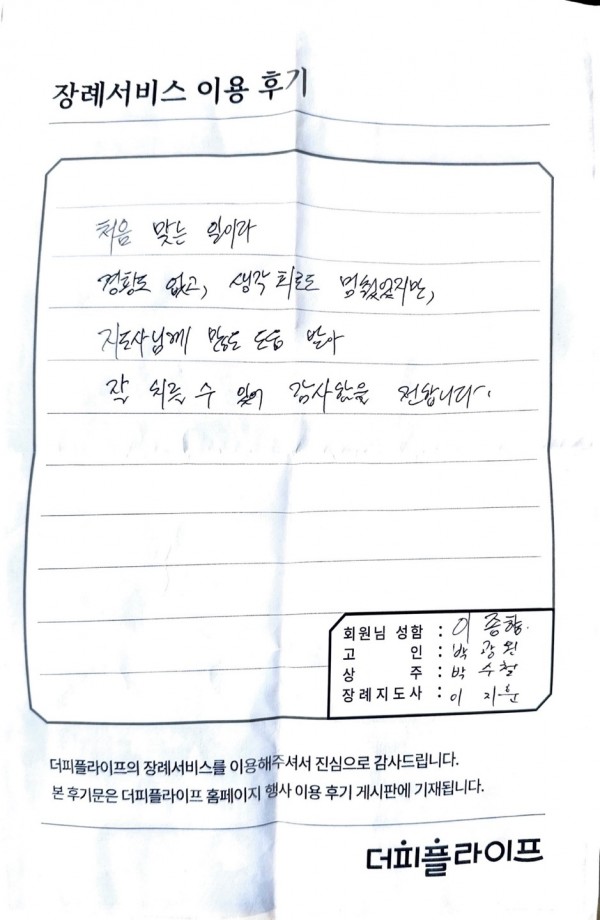 장례서비스 이용 후기
처음 맞는 일이라
경황도 없고, 생각 회로도 멈췄었지만,
지도사님께 많은 도움 받아
잘 치를 수 있어 감사함을 전합니다.
회원님 성함 : 이종향
고 인 : 박광원
상 주 : 박수철
장례지도사 : 이지훈
더피플라이프의 장례서비스를 이용해주셔서 진심으로 감사드립니다.
본 후기문은 더피플라이프 홈페이지 행사 이용 후기 게시판에 기재됩니다.
더피플라이프